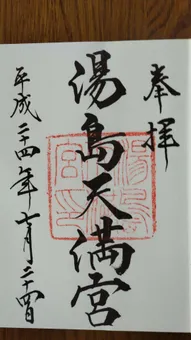 奉拝
湯島天満宮
平成二十四年七月二十四日